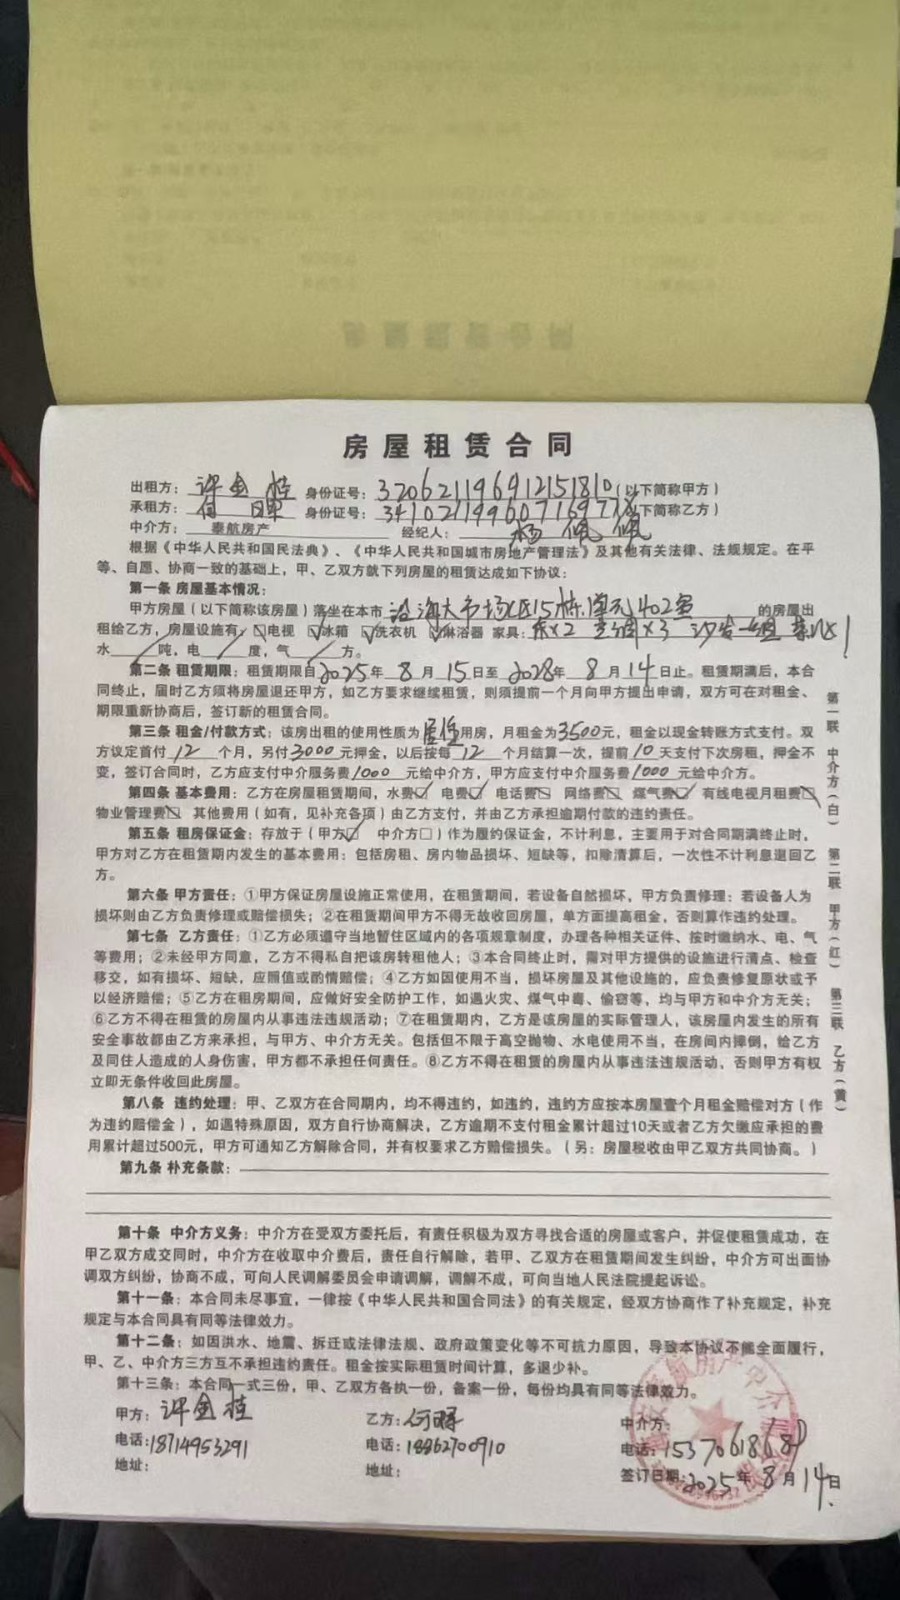 房屋租赁合同
出租方：许金桂 身份证号：320621196912151810（以下简称甲方）
承租方：何 身份证号：（以下简称乙方）
中介方：泰航房产 经纪人：杨佩佩
根据《中华人民共和国民法典》、《中华人民共和国城市房地产管理法》及其他有关法律、法规规定。在平
等、自愿、协商一致的基础上，甲、乙双方就下列房屋的租赁达成如下协议：
第一条 房屋基本情况：
甲方房屋（以下简称该房屋）落坐在本市 沿海大市场 15栋 单元402室 的房屋出
租给乙方，房屋设施有：☑电视 ☑冰箱 ☑洗衣机 ☑淋浴器 家具：床×2 空调×3 沙发一组
水 吨，电 度，气 方。
第二条 租赁期限：租赁期限自2025年8月15日至2028年8月14日止。租赁期满后，本合
同终止，届时乙方须将房屋退还甲方，如乙方要求继续租赁，则须提前一个月向甲方提出申请，双方可在对租金、
期限重新协商后，签订新的租赁合同。
第三条 租金/付款方式：该房出租的使用性质为居住用房，月租金为3500元，租金以现金转账方式支付。双
方议定首付12个月，另付3000元押金，以后按每12个月结算一次，提前10天支付下次房租，押金不
变，签订合同时，乙方应支付中介服务费1000元给中介方，甲方应支付中介服务费1000元给中介方。
第四条 基本费用：乙方在房屋租赁期间，水费☑ 电费☑ 电话费☒ 网络费☒ 煤气费☑ 有线电视月租费☒
物业管理费☒ 其他费用（如有，见补充各项）由乙方支付，并由乙方承担逾期付款的违约责任。
第五条 租房保证金：存放于（甲方☑ 中介方□）作为履约保证金，不计利息，主要用于对合同期满终止时，
甲方对乙方在租赁期内发生的基本费用：包括房租、房内物品损坏、短缺等，扣除清算后，一次性不计利息退回乙
方。
第六条 甲方责任：①甲方保证房屋设施正常使用，在租赁期间，若设备自然损坏，甲方负责修理：若设备人为
损坏则由乙方负责修理或赔偿损失；②在租赁期间甲方不得无故收回房屋，单方面提高租金，否则算作违约处理。
第七条 乙方责任：①乙方必须遵守当地暂住区域内的各项规章制度，办理各种相关证件、按时缴纳水、电、气
等费用；②未经甲方同意，乙方不得私自把该房转租他人；③本合同终止时，需对甲方提供的设施进行清点、检查
移交，如有损坏、短缺，应照值或酌情赔偿；④乙方如因使用不当，损坏房屋及其他设施的，应负责修复原状或予
以经济赔偿；⑤乙方在租房期间，应做好安全防护工作，如遇火灾、煤气中毒、偷窃等，均与甲方和中介方无关；
⑥乙方不得在租赁的房屋内从事违法违规活动；⑦在租赁期内，乙方是该房屋的实际管理人，该房屋内发生的所有
安全事故都由乙方来承担，与甲方、中介方无关。包括但不限于高空抛物、水电使用不当，在房间内摔倒，给乙方
及同住人造成的人身伤害，甲方都不承担任何责任。⑧乙方不得在租赁的房屋内从事违法违规活动，否则甲方有权
立即无条件收回此房屋。
第八条 违约处理：甲、乙双方在合同期内，均不得违约，如违约，违约方应按本房屋壹个月租金赔偿对方（作
为违约赔偿金），如遇特殊原因，双方自行协商解决，乙方逾期不支付租金累计超过10天或者乙方欠缴应承担的费
用累计超过500元，甲方可通知乙方解除合同，并有权要求乙方赔偿损失。（另：房屋税收由甲乙双方共同协商。）
第九条 补充条款：
第十条 中介方义务：中介方在受双方委托后，有责任积极为双方寻找合适的房屋或客户，并促使租赁成功，在
甲乙双方成交同时，中介方在收取中介费后，责任自行解除，若甲、乙双方在租赁期间发生纠纷，中介方可出面协
调双方纠纷，协商不成，可向人民调解委员会申请调解，调解不成，可向当地人民法院提起诉讼。
第十一条：本合同未尽事宜，一律按《中华人民共和国合同法》的有关规定，经双方协商作了补充规定，补充
规定与本合同具有同等法律效力。
第十二条：如因洪水、地震、拆迁或法律法规、政府政策变化等不可抗力原因，导致本协议不能全面履行，
甲、乙、中介方三方互不承担违约责任。租金按实际租赁时间计算，多退少补。
第十三条：本合同一式三份，甲、乙双方各执一份，备案一份，每份均具有同等法律效力。
甲方：许金桂 乙方：何 中介方：
电话：18714953291 电话：18862700910 电话：15370618681
地址： 地址： 签订日期：2025年8月14日
第一联 中介方（白） 第二联 甲方（红） 第三联 乙方（黄）